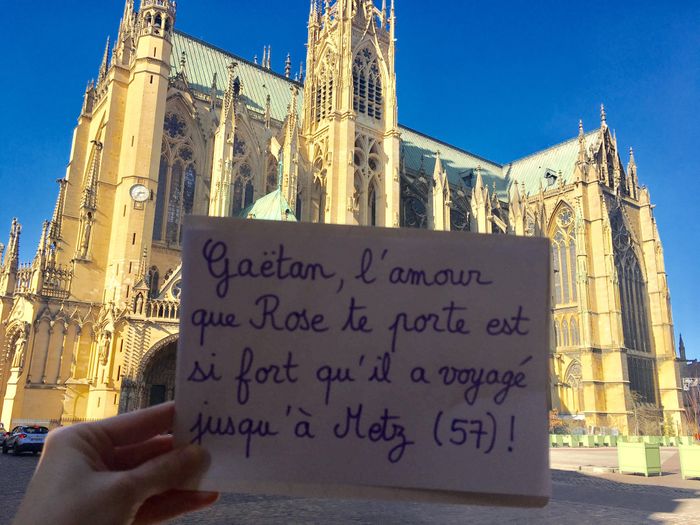 Gaëtan, l'amour
que Rose te porte est
si fort qu'il a voyagé
jusqu'à Metz (57) !